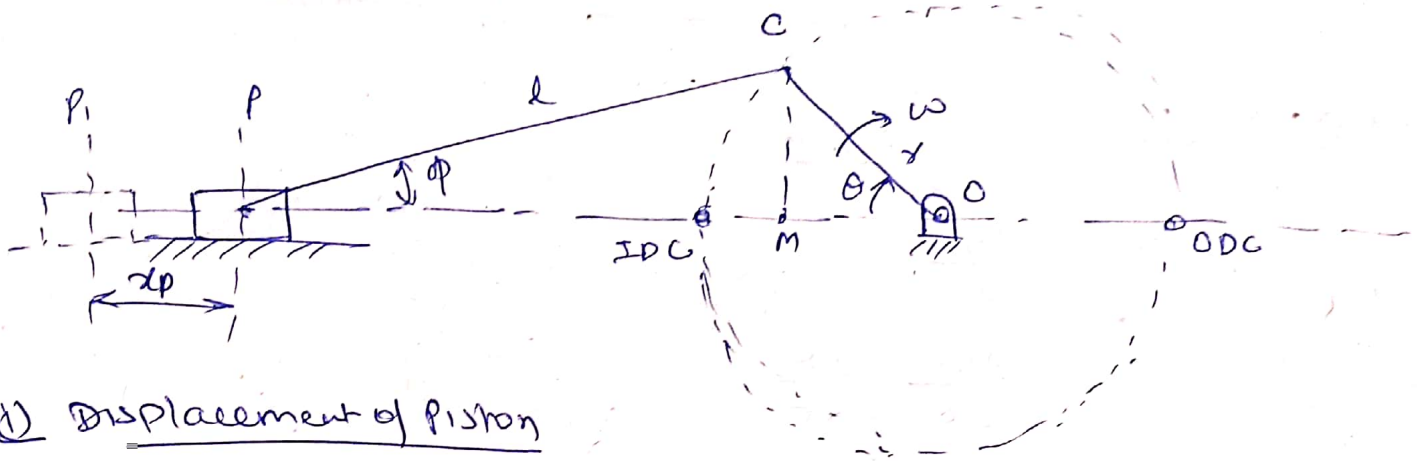 C
P₁ P l ω
r
φ θ O
IDC M ODC
xp
1) Displacement of Piston